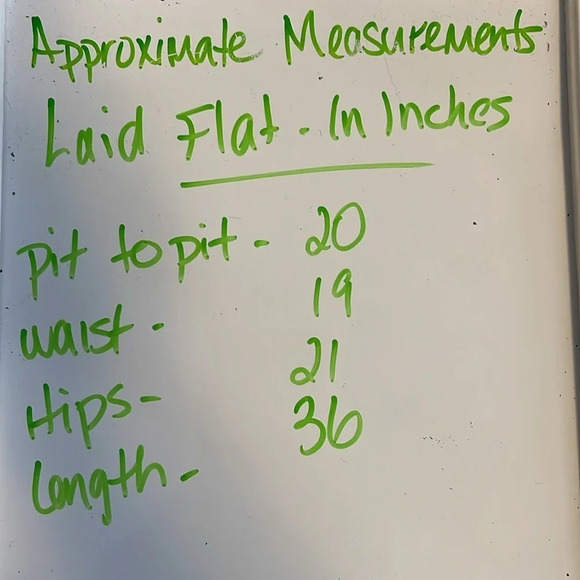 Approximate Measurements
Laid Flat - In Inches
pit to pit - 20
waist - 19
Hips - 21
Length - 36